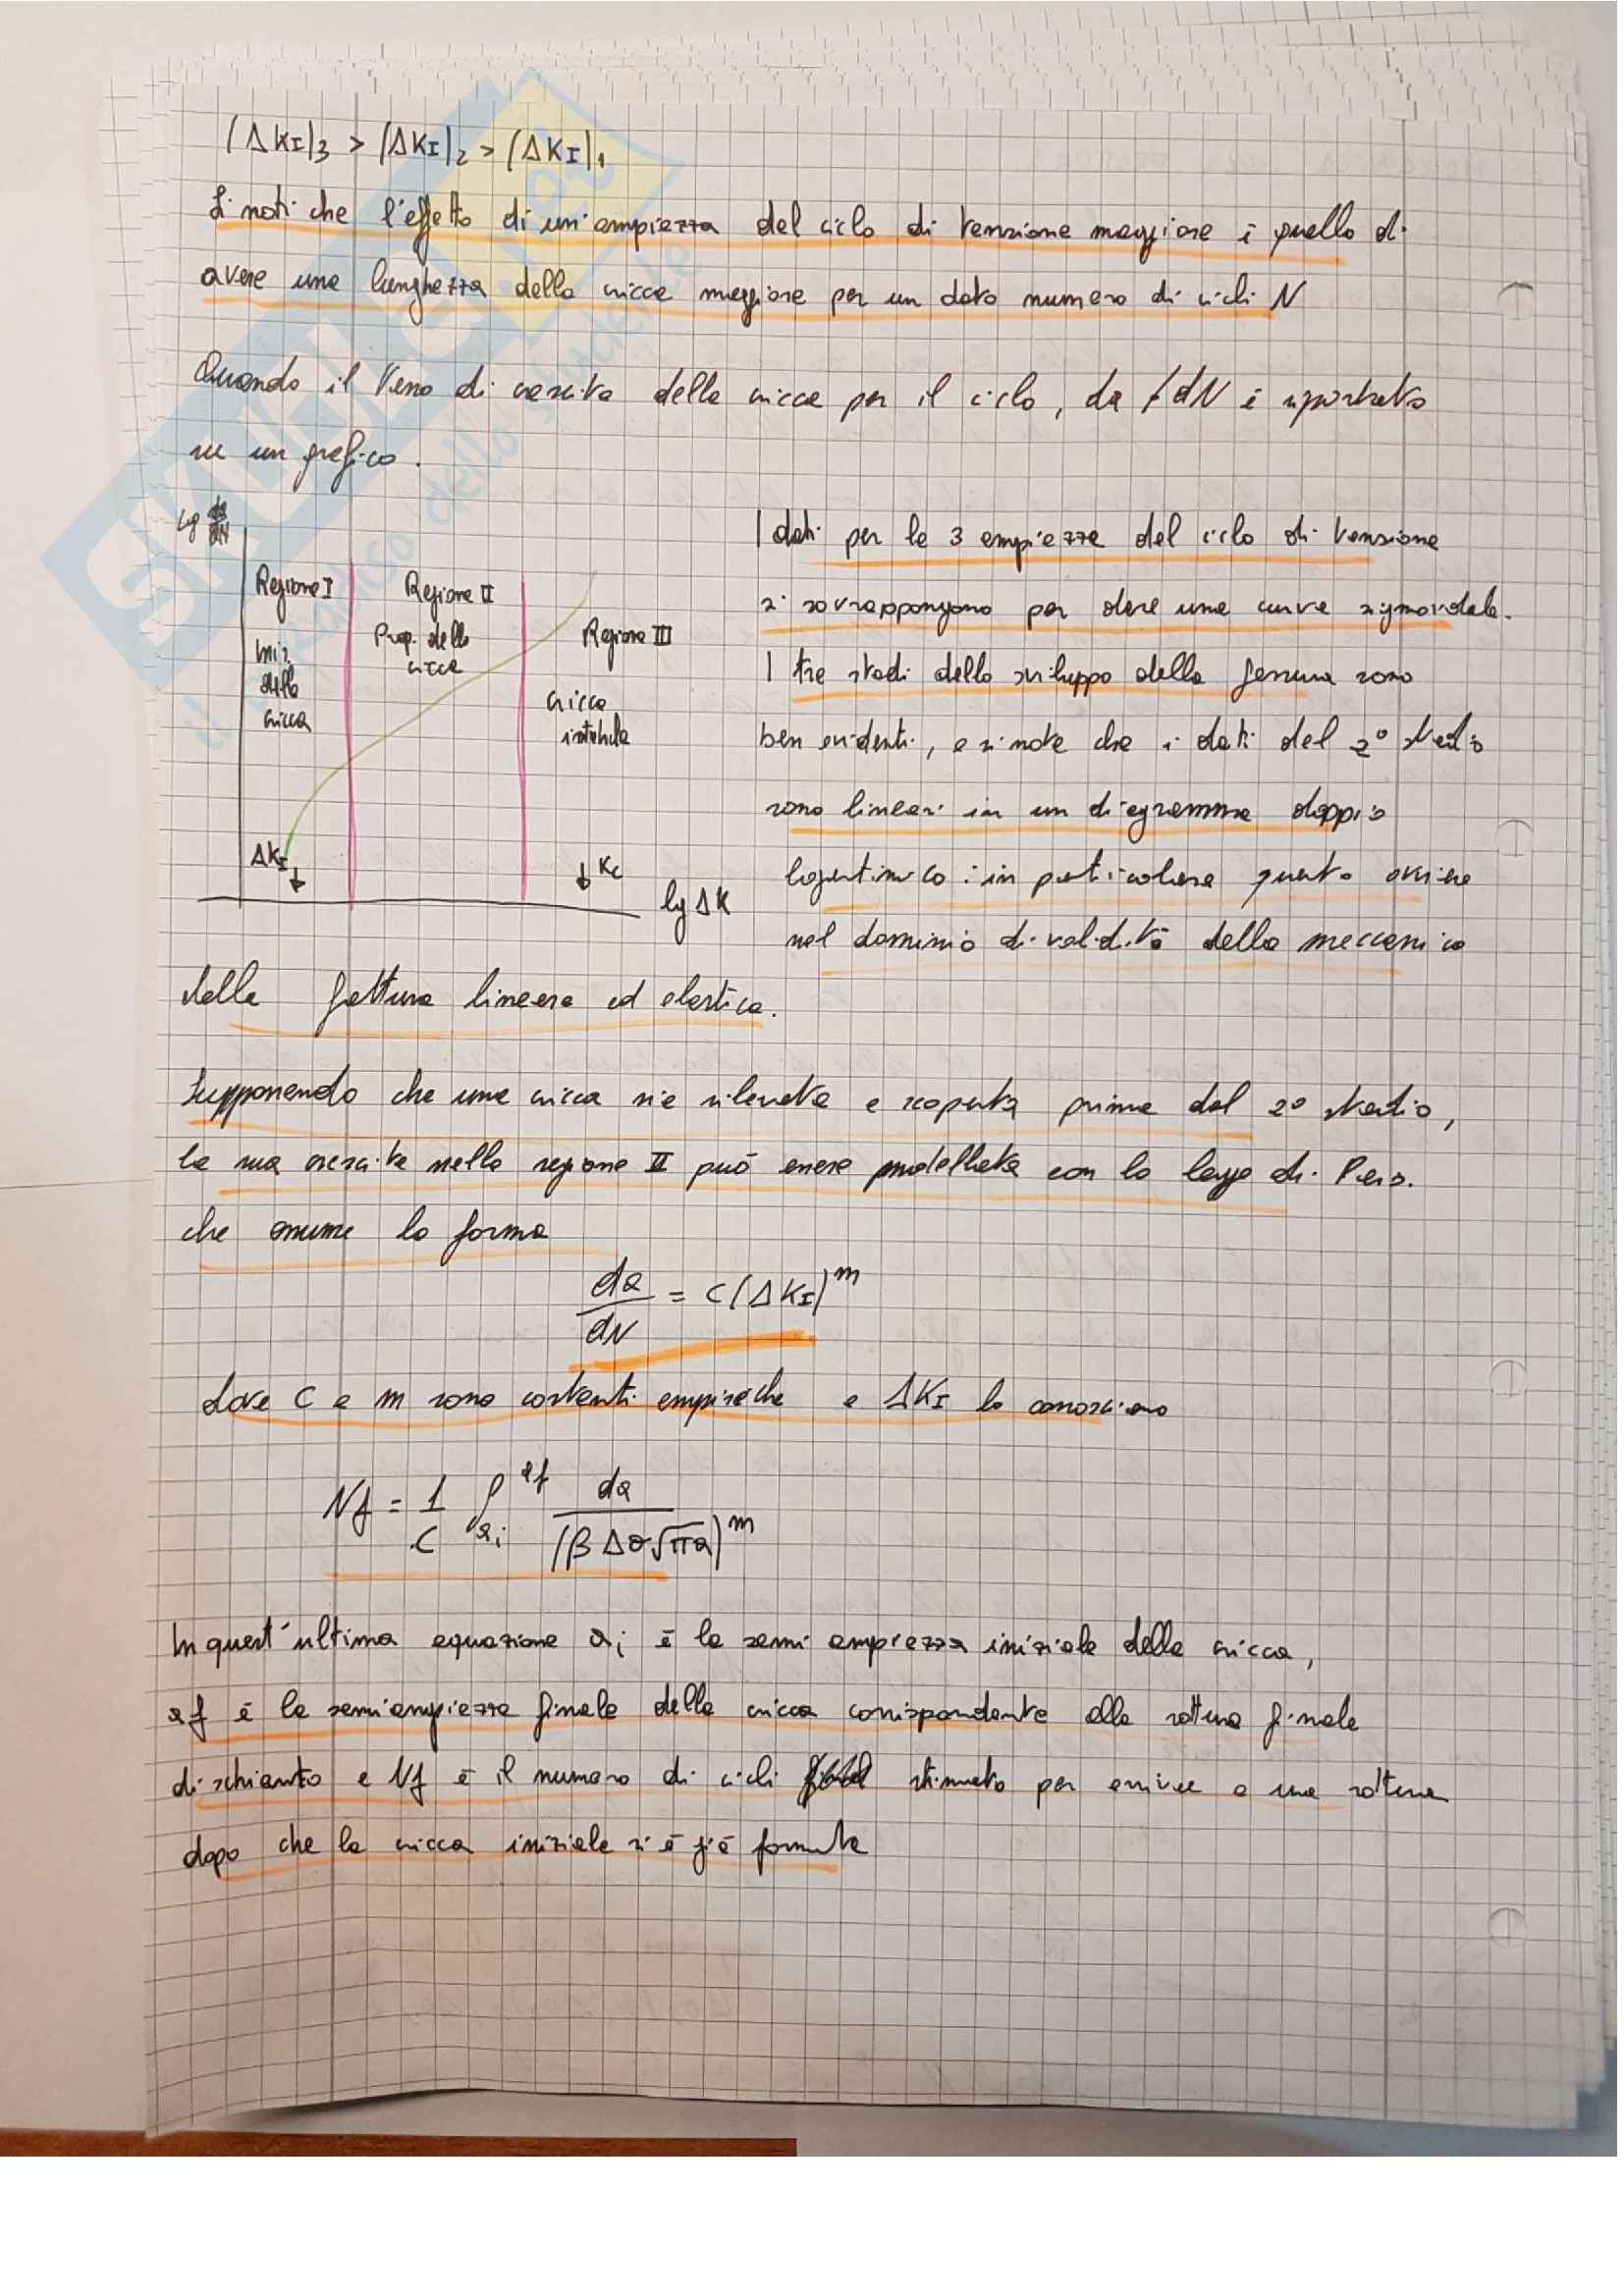 (ΔKI)3 > (ΔKI)2 > (ΔKI)1
Si noti che l'effetto di un'ampiezza del ciclo di tensione maggiore è quello di
avere una lunghezza della cricca maggiore per un dato numero di cicli N
Quando il tasso di crescita della cricca per il ciclo, da/dN è riportato
su un grafico.
lg da/dN
Regione I
Regione II
Regione III
Iniz.
della
cricca
Prop. della
cricca
cricca
instabile
ΔKI ↓
↓ Kc
lg ΔK
I dati per le 3 ampiezze del ciclo di tensione
si sovrappongono per dare una curva sigmoidale.
I tre stadi dello sviluppo della fessura sono
ben evidenti, e si note che i dati del 2° stadio
sono lineari in un diagramma doppio
logaritmico: in particolare questo avviene
nel dominio di validità della meccanica
della frattura lineare ed elastica.
Supponendo che una cricca sia rilevata e scoperta prima del 2° stadio,
la sua crescita nella regione II può essere modellata con la legge di Paris.
che assume la forma
da/dN = C(ΔKI)^m
dove C e m sono costanti empiriche e ΔKI lo conosciamo
Nf = 1/C ∫ai^af da/(β Δσ√πa)^m
In quest'ultima equazione ai è la semi ampiezza iniziale della cricca,
af è la semiampiezza finale della cricca corrispondente alla rottura finale
di schianto e Nf è il numero di cicli stimato per arrivare a una rottura
dopo che la cricca iniziale si è già formata
SKUOLA.net